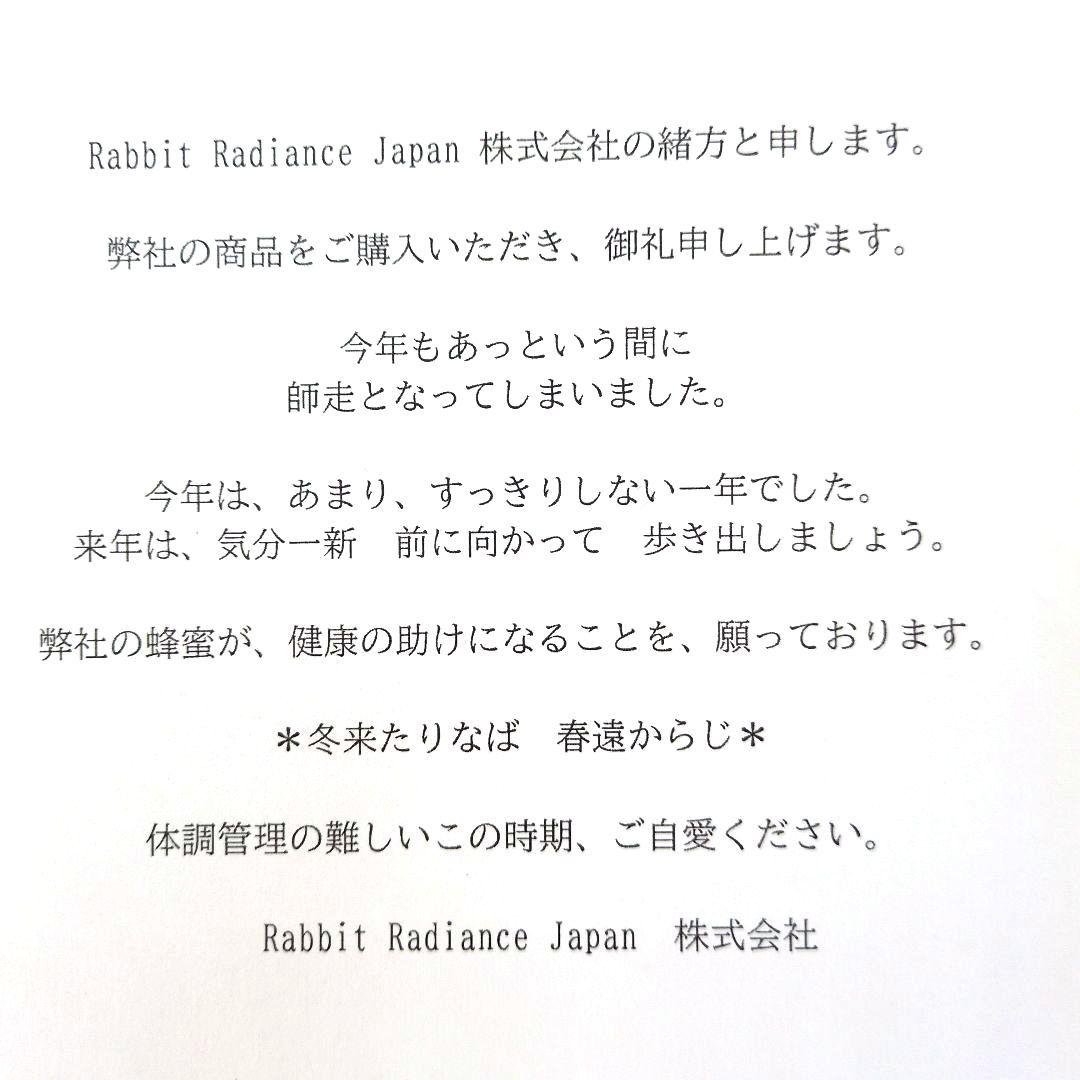 Rabbit Radiance Japan 株式会社の緒方と申します。
弊社の商品をご購入いただき、御礼申し上げます。
今年もあっという間に
師走となってしまいました。
今年は、あまり、すっきりしない一年でした。
来年は、気分一新　前に向かって　歩き出しましょう。
弊社の蜂蜜が、健康の助けになることを、願っております。
＊冬来たりなば　春遠からじ＊
体調管理の難しいこの時期、ご自愛ください。
Rabbit Radiance Japan　株式会社